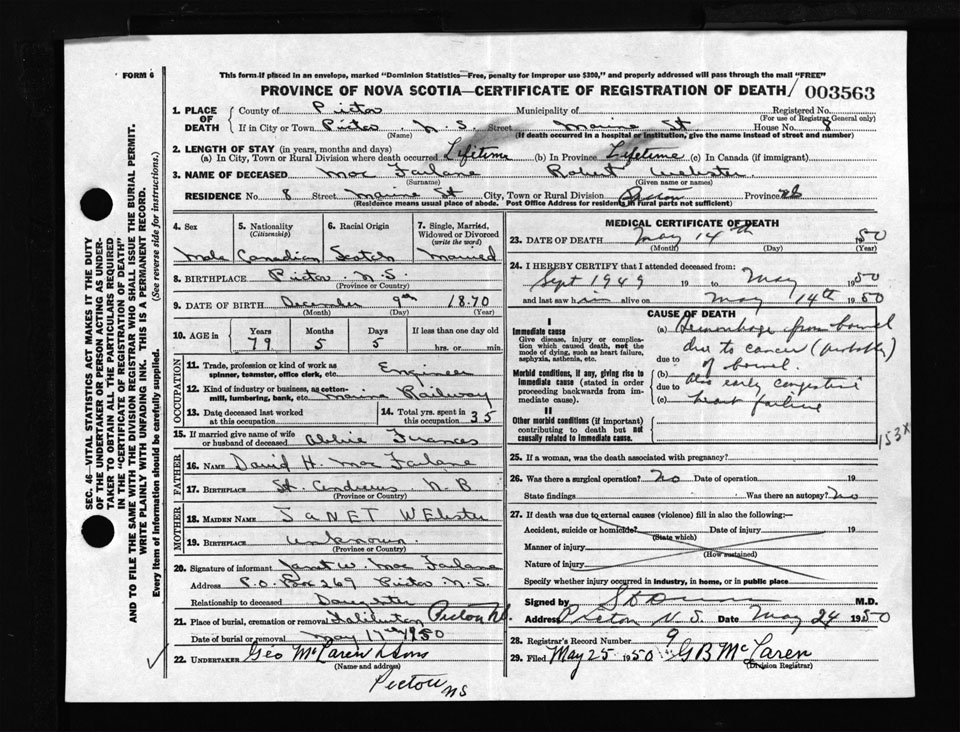 FORM 6
This form if placed in an envelope, marked "Dominion Statistics—Free, penalty for improper use $300," and properly addressed will pass through the mail "FREE"
PROVINCE OF NOVA SCOTIA—CERTIFICATE OF REGISTRATION OF DEATH/ 003563
SEC. 46—VITAL STATISTICS ACT MAKES IT THE DUTY
OF THE UNDERTAKER OR PERSON ACTING AS UNDER-
TAKER TO OBTAIN ALL THE PARTICULARS REQUIRED
IN THE "CERTIFICATE OF REGISTRATION OF DEATH"
AND TO FILE THE SAME WITH THE DIVISION REGISTRAR WHO SHALL ISSUE THE BURIAL PERMIT.
WRITE PLAINLY WITH UNFADING INK. THIS IS A PERMANENT RECORD.
Every item of information should be carefully supplied. (See reverse side for instructions.)
1. PLACE OF DEATH
County of Pictou Municipality of Registered No.
(For use of Registrar General only)
If in City or Town Pictou N S. Street Marine St House No. 8
(Name) (If death occurred in a hospital or institution, give the name instead of street and number)
2. LENGTH OF STAY (in years, months and days)
(a) In City, Town or Rural Division where death occurred Lifetime (b) In Province Lifetime (c) In Canada (if immigrant)
3. NAME OF DECEASED Mac Farlane Robert Webster
(Surname) (Given name or names)
RESIDENCE No. 8 Street Marine St City, Town or Rural Division Pictou Province NS
(Residence means usual place of abode. Post Office Address for residents in rural parts not sufficient)
4. Sex 5. Nationality (Citizenship) 6. Racial Origin 7. Single, Married, Widowed or Divorced (write the word)
Male Canadian Scotch Married
8. BIRTHPLACE Pictou N.S.
(Province or Country)
9. DATE OF BIRTH December 9th 1870
(Month) (Day) (Year)
10. AGE in Years Months Days If less than one day old
79 5 5 hrs. or min.
OCCUPATION
11. Trade, profession or kind of work as spinner, teamster, office clerk, etc. Engineer
12. Kind of industry or business, as cotton-mill, lumbering, bank, etc. Marine Railway
13. Date deceased last worked at this occupation
14. Total yrs. spent in this occupation 35
15. If married give name of wife or husband of deceased Abbie Frances
FATHER
16. NAME David H. Mac Farlane
17. BIRTHPLACE St. Andrews N. B
(Province or Country)
MOTHER
18. MAIDEN NAME JANET WEbster
19. BIRTHPLACE unknown.
(Province or Country)
20. Signature of informant Janet W. Mac Farlane
Address P.O. Box 269 Pictou N.S.
Relationship to deceased Daughter
21. Place of burial, cremation or removal Haliburton Pictou N.S.
Date of burial or removal May 17th 1950
22. UNDERTAKER Geo McLaren & Sons
(Name and address)
Pictou NS
MEDICAL CERTIFICATE OF DEATH
23. DATE OF DEATH May 14th 1950
(Month) (Day) (Year)
24. I HEREBY CERTIFY that I attended deceased from:
Sept 1949 19 to May 1950
and last saw him alive on May 14th 1950
CAUSE OF DEATH
I
Immediate cause
Give disease, injury or complication which caused death, not the mode of dying, such as heart failure, asphyxia, asthenia, etc.
Morbid conditions, if any, giving rise to immediate cause (stated in order proceeding backwards from immediate cause).
II
Other morbid conditions (if important) contributing to death but not causally related to immediate cause.
(a) Hemorrhage from bowel
due to due to cancer (probably)
of bowel.
(b)
due to Also early congestive
(c) heart failure
153X
25. If a woman, was the death associated with pregnancy?
26. Was there a surgical operation? No Date of operation 19
State findings Was there an autopsy? No
27. If death was due to external causes (violence) fill in also the following:—
Accident, suicide or homicide? Date of injury 19
(State which)
Manner of injury
(How sustained)
Nature of injury
Specify whether injury occurred in industry, in home, or in public place
Signed by M.D.
Address Pictou N. S. Date May 24 1950
28. Registrar's Record Number 9
29. Filed May 25 1950 G B McLaren
(Division Registrar)